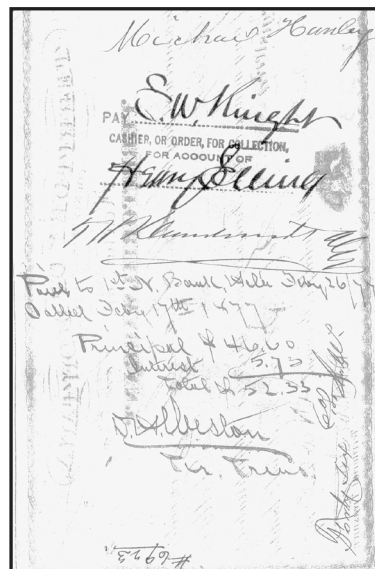 Michael Hanley
PAY E. W. Knight
CASHIER, OR ORDER, FOR COLLECTION,
FOR ACCOUNT OF
Henry Elling
Paid to 1st N. Bank Feby 26/77
Called Feby 17th 1877
Principal $ 46.60
Interest 5.73
Total $ 52.33
D. H. Weston
Ter. Treas.
#6923